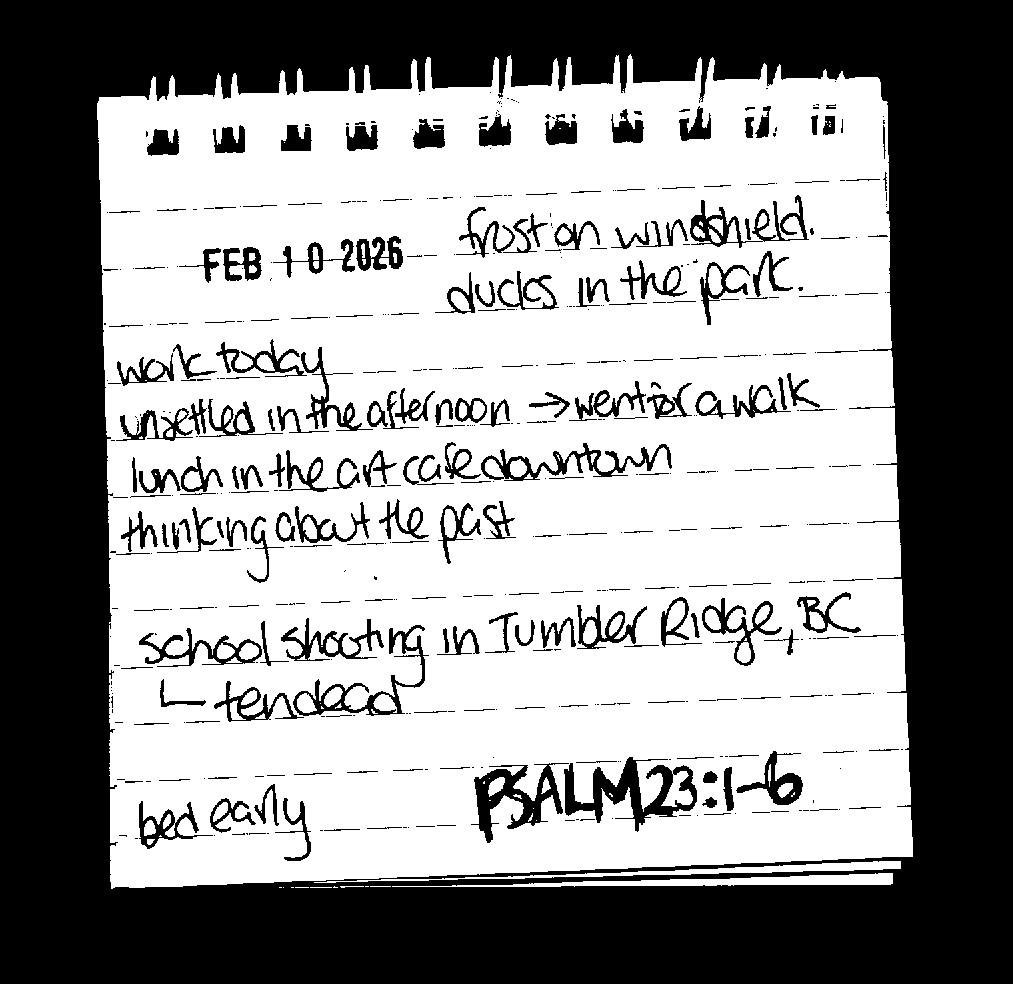 frost on windshield.
FEB 10 2026
ducks in the park.
work today
unsettled in the afternoon → went for a walk
lunch in the art cafe downtown
thinking about the past
school shooting in Tumbler Ridge, BC
└ ten dead
bed early
PSALM 23:1-6